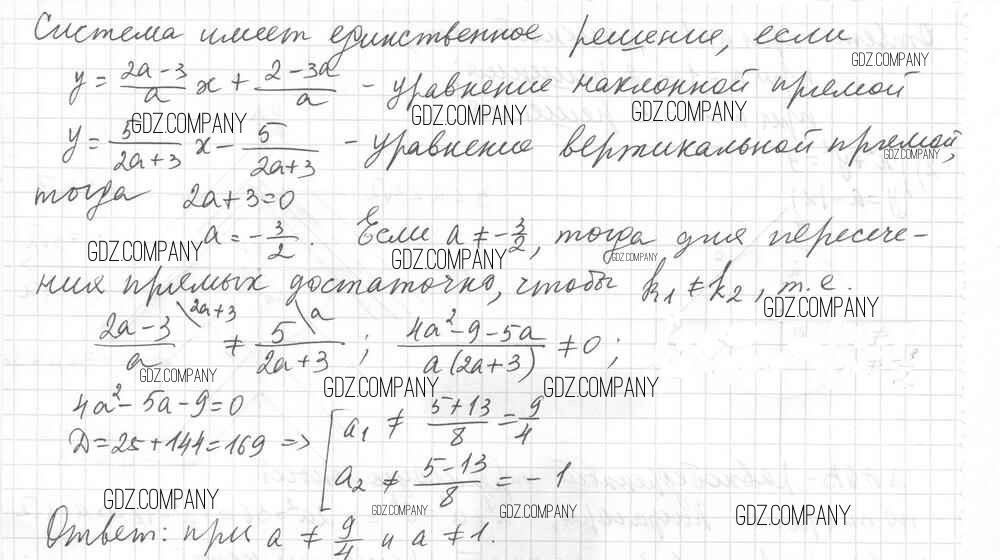 Система имеет единственное решение, если
GDZ.COMPANY
y = \frac{2a-3}{a} x + \frac{2-3a}{a} - уравнение наклонной прямой
GDZ.COMPANY GDZ.COMPANY GDZ.COMPANY
y = \frac{5}{2a+3} x - \frac{5}{2a+3} - уравнение вертикальной прямой,
GDZ.COMPANY
тогда 2a+3=0
a = -\frac{3}{2}. Если a ≠ -\frac{3}{2}, тогда для пересече-
GDZ.COMPANY GDZ.COMPANY GDZ.COMPANY
ния прямых достаточно, чтобы k₁ ≠ k₂, т.е.
GDZ.COMPANY
\frac{2a-3}{a}^{\2a+3} ≠ \frac{5}{2a+3}^{\a} ; \frac{4a²-9-5a}{a(2a+3)} ≠ 0 ;
GDZ.COMPANY GDZ.COMPANY GDZ.COMPANY
4a²-5a-9=0
D=25+144=169 => [ a₁ ≠ \frac{5+13}{8} = \frac{9}{4}
a₂ ≠ \frac{5-13}{8} = -1
GDZ.COMPANY GDZ.COMPANY GDZ.COMPANY GDZ.COMPANY
Ответ: при a ≠ \frac{9}{4} и a ≠ 1.